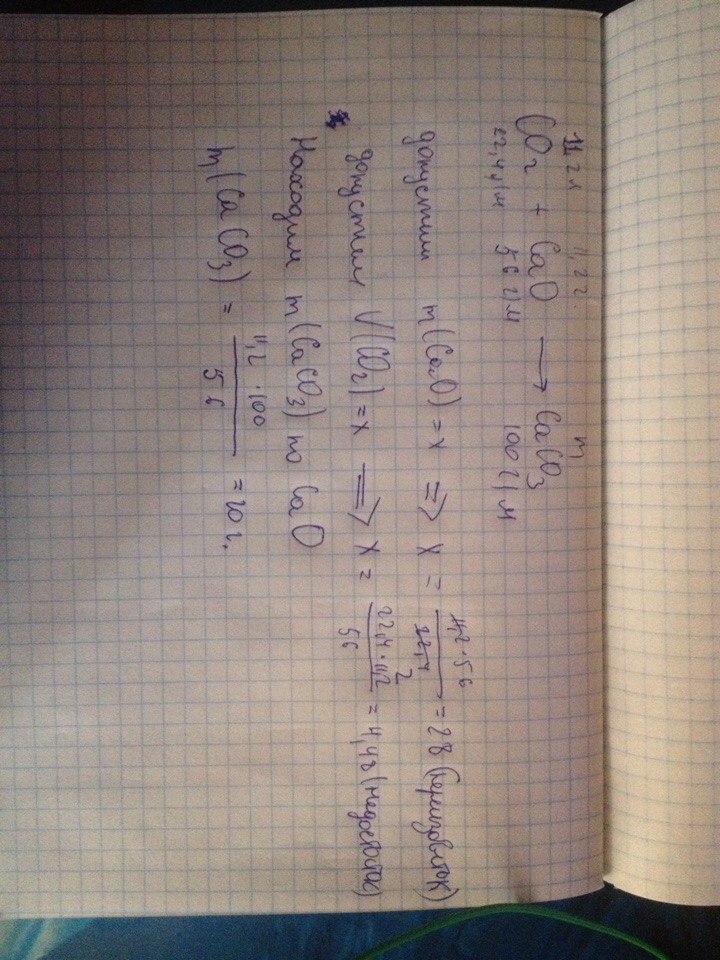 11,2 л 11,2 г. m
CO₂ + CaO ⟶ CaCO₃
22,4 л/м 56 г/м 100 г/м
допустим m(CaO) = x => x = 11,2·56 / 22,4 = 28 
допустим V(CO₂) = x => x = 22,4·11,2 / 56 = 4,48 (недостаток)
Находим m(CaCO₃) по CaO
m(CaCO₃) = 11,2·100 / 56 = 20 г.